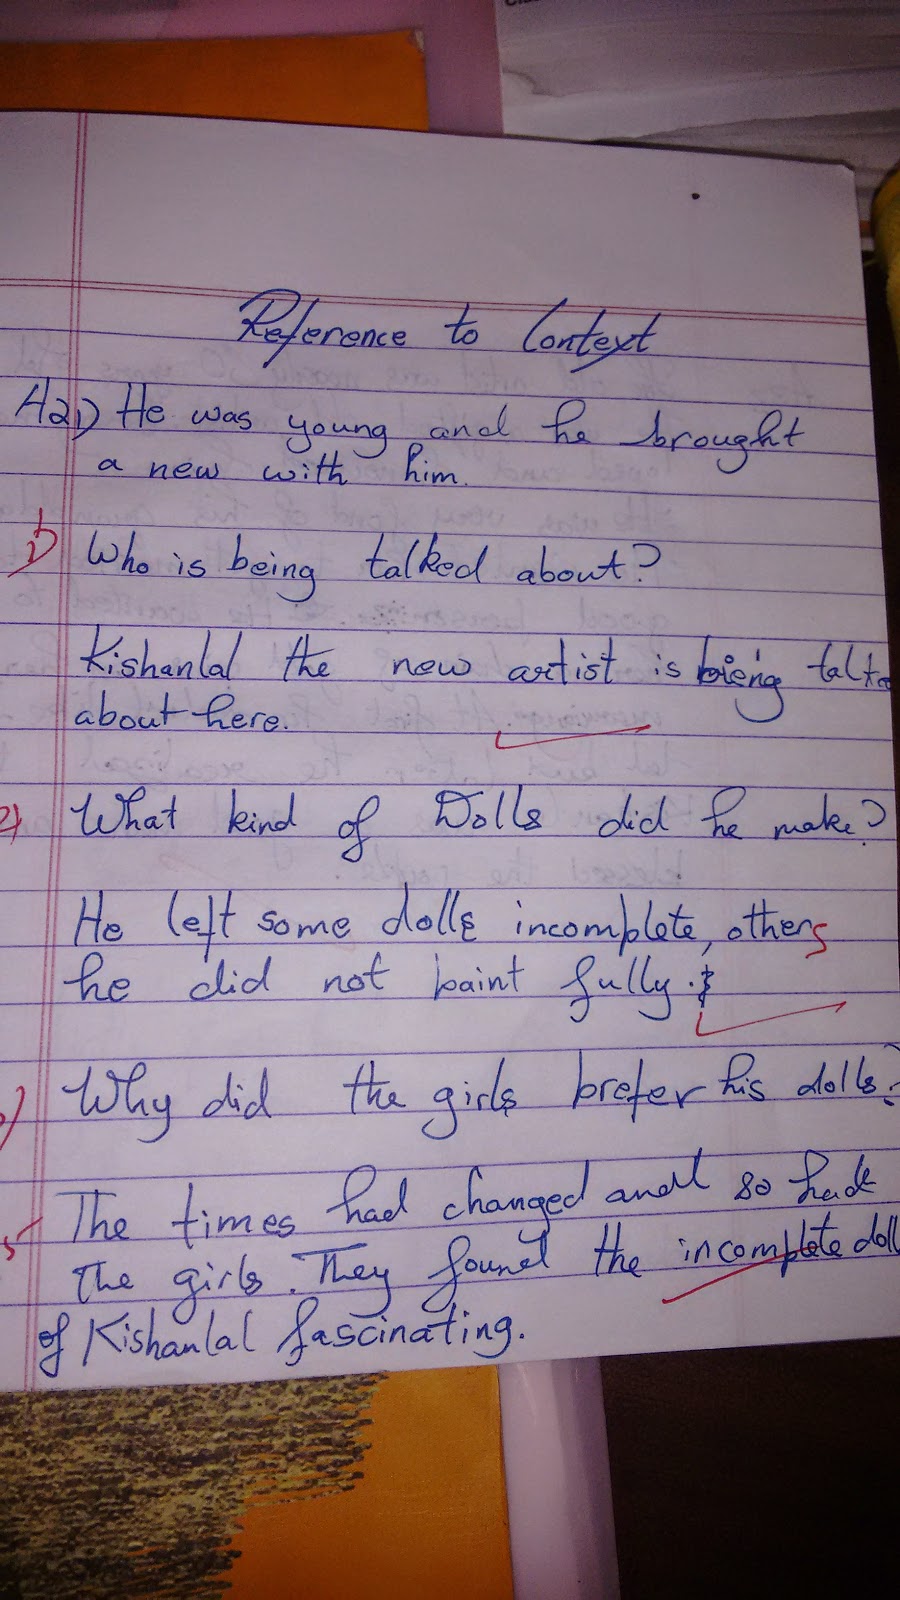 Reference to Context
A2 1) He was young and he brought
a new with him.
1) Who is being talked about?
Kishanlal the new artist is being talke
about here.
2) What kind of Dolls did he make?
He left some dolls incomplete, others
he did not paint fully.
Why did the girls prefer his dolls?
The times had changed and so had
the girls. They found the incomplete doll
of Kishanlal fascinating.